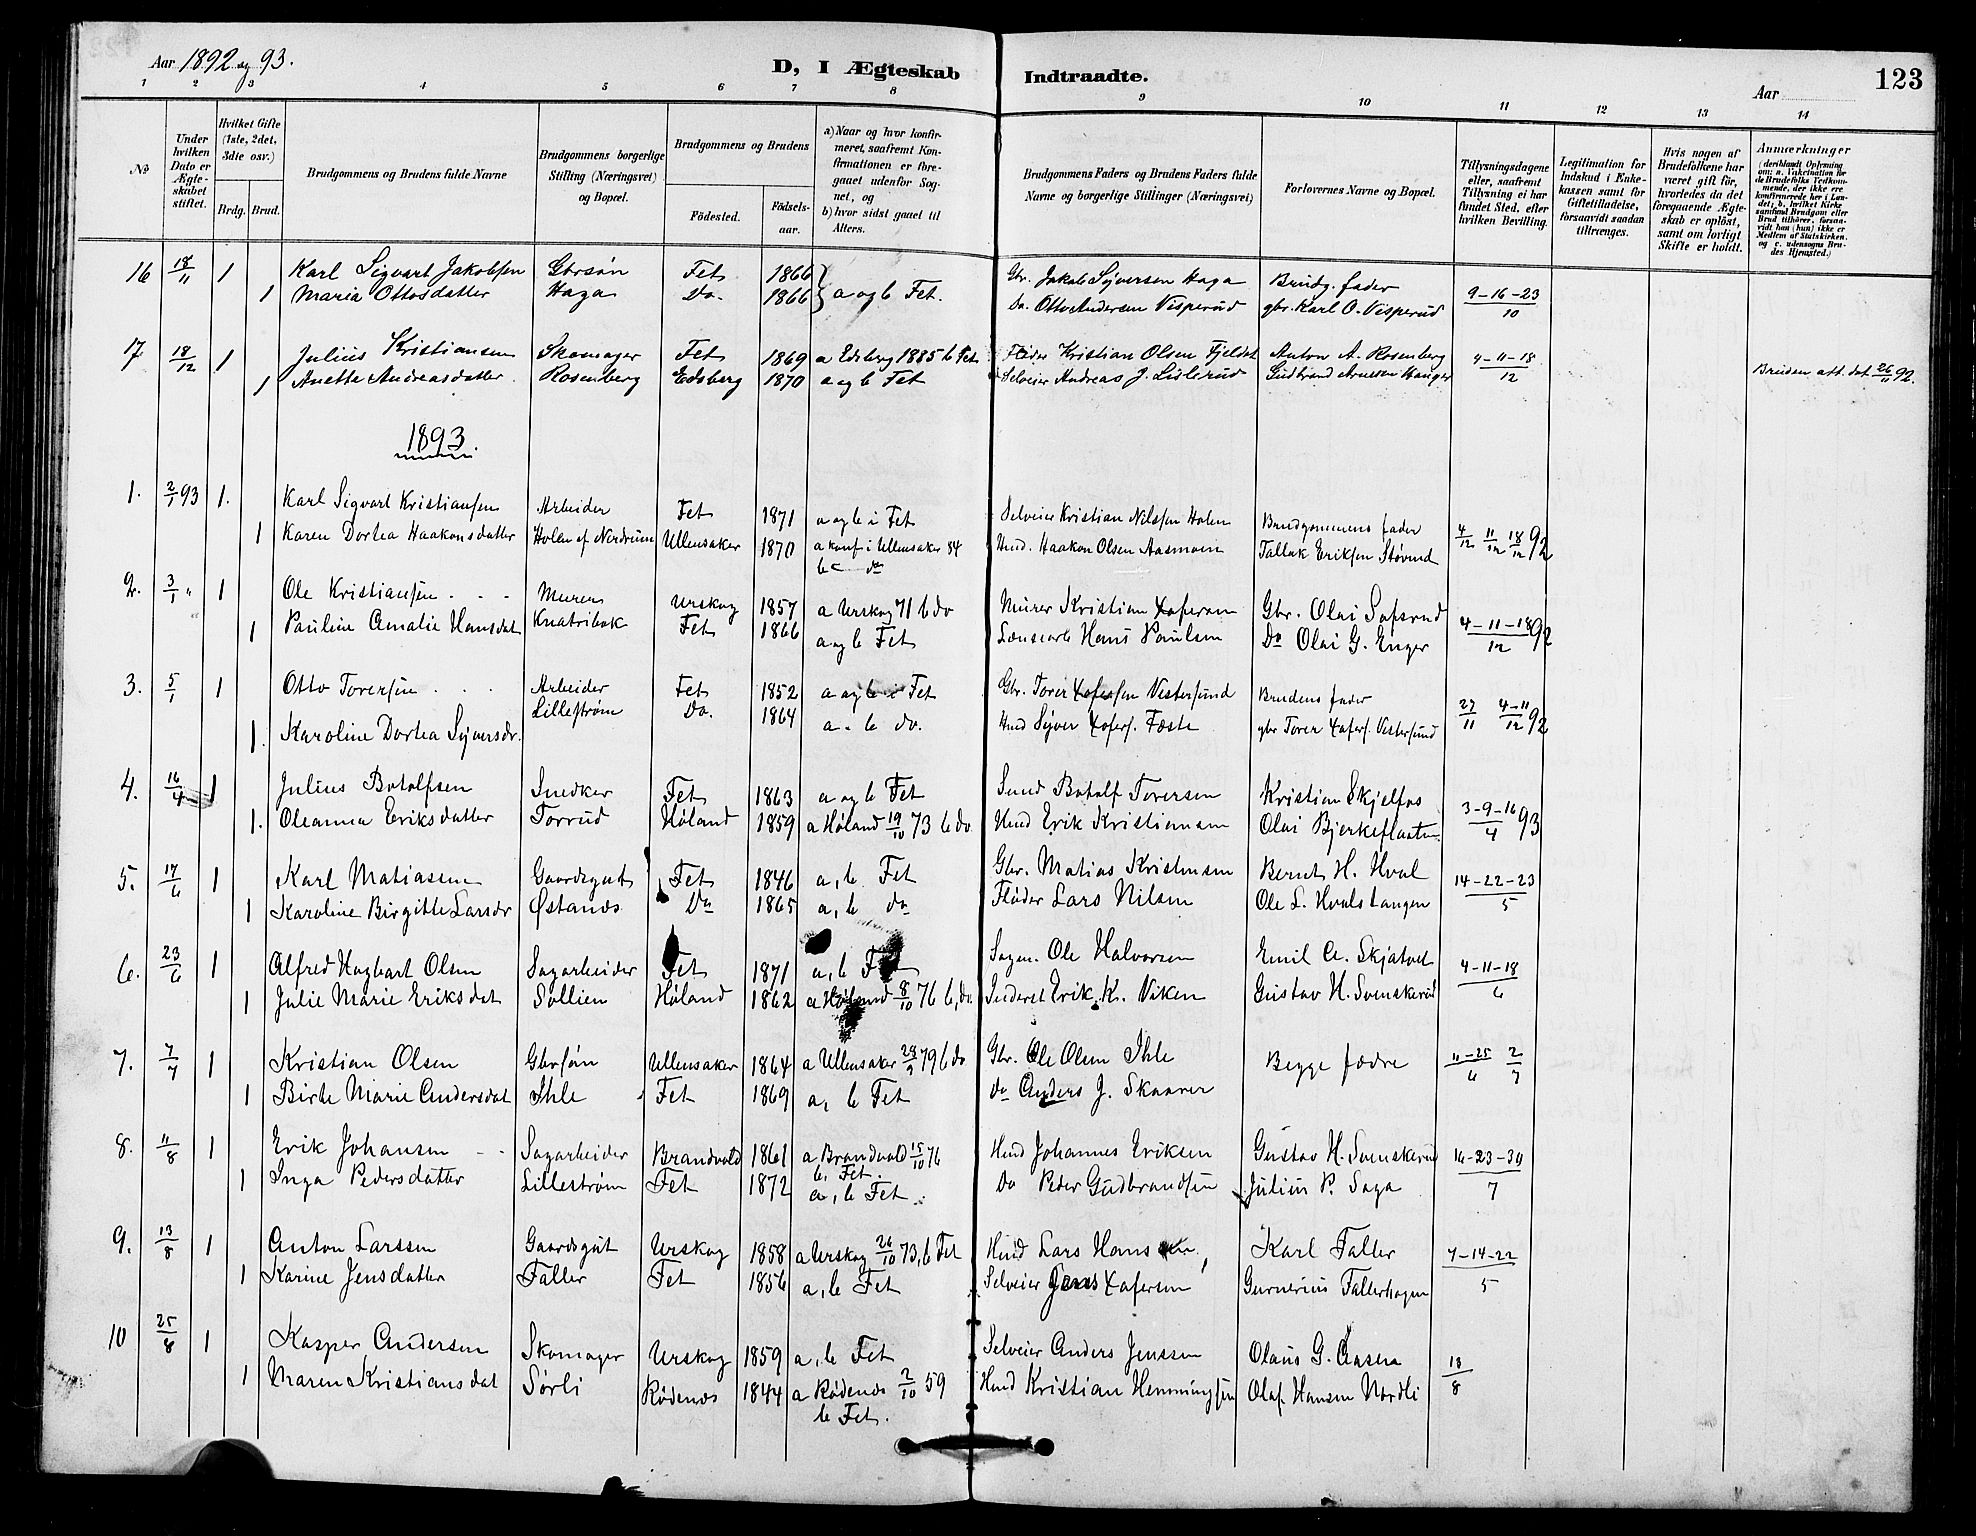 Aar 1892 og 93.
D, I Ægteskab Indtraadte.
Aar
123
1 2 3 4 5 6 7 8 9 10 11 12 13 14
№
Under hvilken Dato er Ægteskabet stiftet.
Hvilket Gifte (1ste, 2det, 3die osv.)
Brdg. Brud.
Brudgommens og Brudens fulde Navne
Brudgommens borgerlige Stilling (Næringsvei) og Bopæl.
Brudgommens og Brudens
Fødested. Fødselsaar.
a) Naar og hvor konfirmeret, saafremt Konfirmationen er foregaaet udenfor Sognet, og
b) hvor sidst gaaet til Alters.
Brudgommens Faders og Brudens Faders fulde Navne og borgerlige Stillinger (Næringsvei)
Forlovernes Navne og Bopæl.
Tillysningsdagene eller, saafremt Tillysning ei har fundet Sted, efter hvilken Bevilling.
Legitimation for Indskud i Enkekassen samt for Giftetilladelse, forsaavidt saadan tiltrænges.
Hvis nogen af Brudefolkene har været gift før, hvorledes da det foregaaende Ægteskab er opløst, samt om lovligt Skifte er holdt.
Anmærkninger
(deriblandt Oplysning om: a. Vakcination for de Brudefolks Vedkommende, der ikke ere konfirmerede her i Landet; b. hvilket Kirkesamfund Brudgom eller Brud tilhører, forsaavidt han (hun) ikke er Medlem af Statskirken, og c. udensogns Brudes Hjemsted.)
16 18/11 1 Karl Sigvart Jakobsen Gbrsøn Fet 1866 Gbr. Jakob Syversen Haga Brudg. fader 9-16-23/10
1 Maria Ottosdatter Haga Do. 1866 a og b Fet. Do. Otto Andersen Visperud gbr. Karl O. Visperud
17 18/12 1 Julius Kristiansen Skomager Fet 1869 a Edsberg 1885 b Fet Fløder Kristian Olsen Fjeldet Anton A. Rosenberg 4-11-18/12
1 Anette Andreasdatter Rosenberg Edsberg 1870 a og b Fet Selveier Andreas J. Lislerud Gudbrand Arnesen Hanger Bruden att. dat 26/11 92.
1893.
1. 2/1 93 1. Karl Sigvart Kristiansen Arbeider Fet 1871 a og b i Fet Selveier Kristian Nilssen Holen Brudgommens fader 4/12 11/12 18/12 92
1 Karen Dortea Haakonsdatter Holen af Nordrum Ullensaker 1870 a konf. i Ullensaker 84 Hmd. Haakon Olsen Aasmoen Tallak Eriksen Støvind
b do
2. 3/1 " 1 Ole Kristiansen Murer Urskog 1857 a Urskog 71 b do Murer Kristian Xofersen Gbr. Olai Sofsrud 4-11-18/12 92
1 Pauline Amalie Hansdat Knatribak Fet 1866 a og b Fet Hans Paulsen Do Olai G. Enger
3. 5/1 1 Otto Toresen Arbeider Fet 1852 a og b i Fet Gbr. Torer Xofersen Vestersund Brudens fader 27/11 4-11/12 92
1. Karoline Dortea Syversdr. Lillestrøm Do. 1864 a. b do. Hmd Syver Xofers. Fæste gbr Torer Xofers. Vestersund
4. 16/4 1 Julius Botolfsen Snedker Fet 1863 a og b Fet Smed Botolf Toresen Kristian Skjelfos 3-9-16/4 93
1. Oleanna Eriksdatter Torrud Høland 1859 a Høland 19/10 73 b do Hmd Erik Kristiansen Olai Bjerkeflaaten
5. 17/6 1 Karl Matiasen Gaardsgut Fet 1846 a, b Fet Gbr. Matias Kristensen Bernt H. Hval 14-22-23/5
1 Karoline Birgitte Larsdr Østanes Do 1865 a, b do Fløder Lars Nilsen Ole L. Hvalstangen
6. 23/6 1 Alfred Hagbart Olsen Sagarbeider Fet 1871 a, b Fet Sagm. Ole Halvorsen Emil A. Skjatvet 4-11-18/6
1 Julie Marie Eriksdat Sollien Høland 1862 a Høland 8/10 76 b, do Inderst Erik K. Viken Gustav H. Svenskerud
7. 7/7 1 Kristian Olsen Gbrsøn Ullensaker 1864 a Ullensaker 28/9 79 b do Gbr. Ole Olsen Ihle Begge fædre 11-25/6 2/7
1 Birte Marie Andersdat Ihle Fet 1869 a, b Fet do Anders J. Skaarer
8. 11/8 1 Erik Johansen Sagarbeider Brandvold 1861 a Brandvold 15/10 76 Hmd Johannes Eriksen Gustav H. Svenskerud 16-23-30/7
b, Fet.
1 Inga Pedersdatter Lillestrøm Fet 1872 a, b Fet. Do Peder Gudbrandsen Julius P. Saga
9. 13/8 1 Anton Larssen Gaardsgut Urskog 1858 a Urskog 26/10 73, b Fet Hmd Lars Hansen Karl Faller 7-14-22/5
1 Karine Jensdatter Faller Fet 1856 a, b Fet Selveier Jens Xofersen Gunerius Fallerhagen
10 25/8 1 Kasper Andersen Skomager Urskog 1859 a, b Fet Selveier Anders Jenssen Olaus G. Aasen 18/8
1 Maren Kristiansdat Sørli Rødenes 1844 a Rødenes 2/10 59 Hmd Kristian Hemmingsen Olaf Hansen Nordli
b Fet.